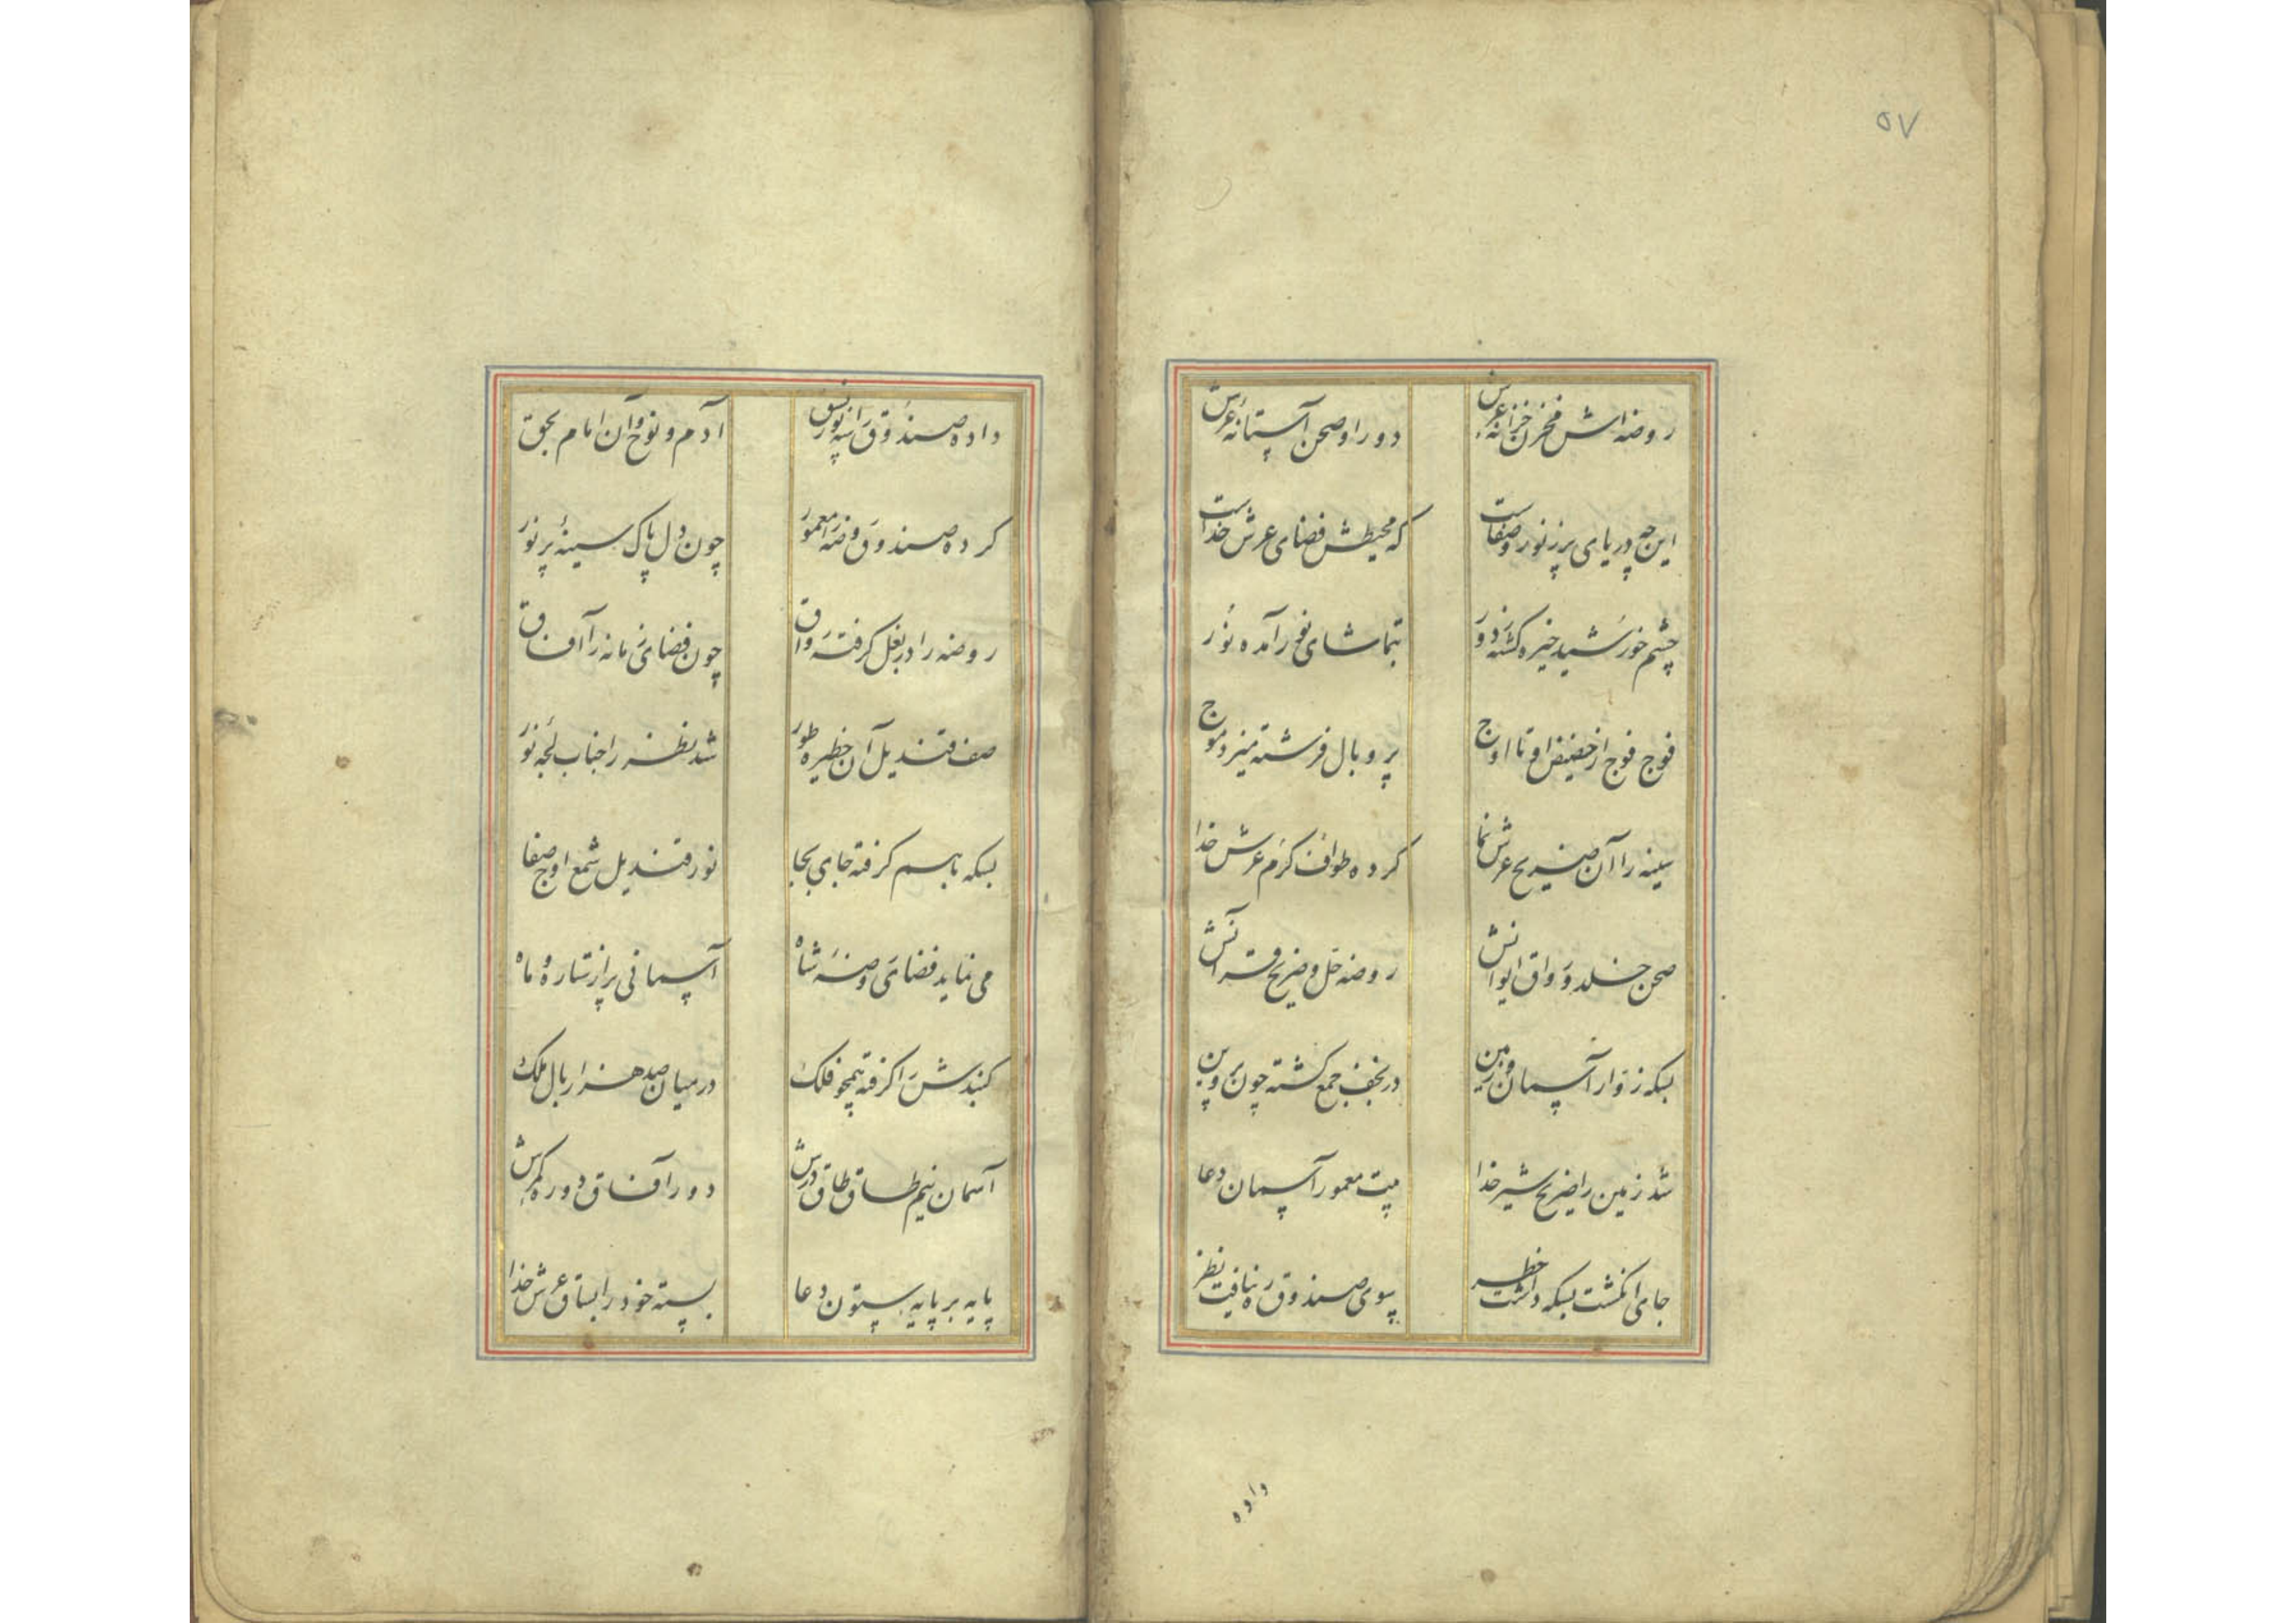 ۵۷
روضه اش مخزن خزانه عرش دور او صحن آستانه عرش
این چه دریای پر ز نور و صفاست که محیطش فضای عرش خداست
چشم خورشید خیره گشته ز دور بتماشای نور آمده نور
فوج فوج از حضیض او تا اوج پر و بال فرشته میزد موج
سینه را آن ضریح عرش نما کرده طواف کرم عرش خدا
صحن خلد و رواق ایوانش روضه خل و ضریح قرآنش
بسکه زوار آسمان و زمین در نجف جمع گشته چون پروین
شد زمین را ضریح شیر خدا بیت معمور آسمان دعا
جای انگشت بسکه داشت خطر سوی صندوق ره نیافت نظر
داده
داده صندوق را سه نور نسق آدم و نوح و آن امام بحق
کرده صندوق روضه را معمور چون دل پاک سینهٔ پر نور
روضه را در بغل گرفته رواق چون فضای زمانه را آفاق
صف قندیل آن حظیره طور شد نظر را حباب لجه نور
بسکه با هم گرفته جای بجا نور قندیل شمع اوج صفا
می نماید فضای روضه شاه آسمانی پر از ستاره و ماه
گنبدش را گرفته همچو فلک در میان صد هزار بال ملک
آسمان نیم طاق طاق درش دور آفاق دوره کمرش
پایه بر پایه ستون دعا بسته خود را بساق عرش خدا